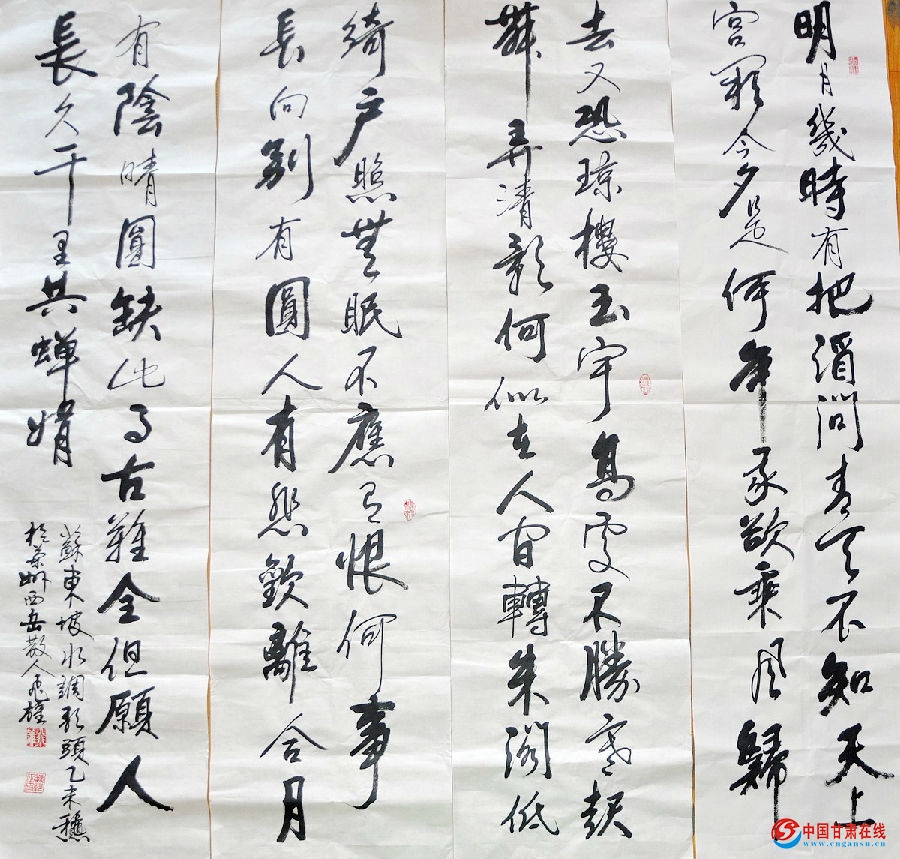 明月幾時有把酒問青天不知天上
宮闕今夕是何年我欲乘風歸
去又恐瓊樓玉宇高處不勝寒起
舞弄清影何似在人間轉朱閣低
綺户照無眠不應有恨何事
長向別有圓人有悲歡離合月
有陰晴圓缺此事古難全但願人
長久千里共蟬娟
蘇東坡水調歌頭乙未穐
於蘭州西岳散人
中国甘肃在线
www.cngansu.cn